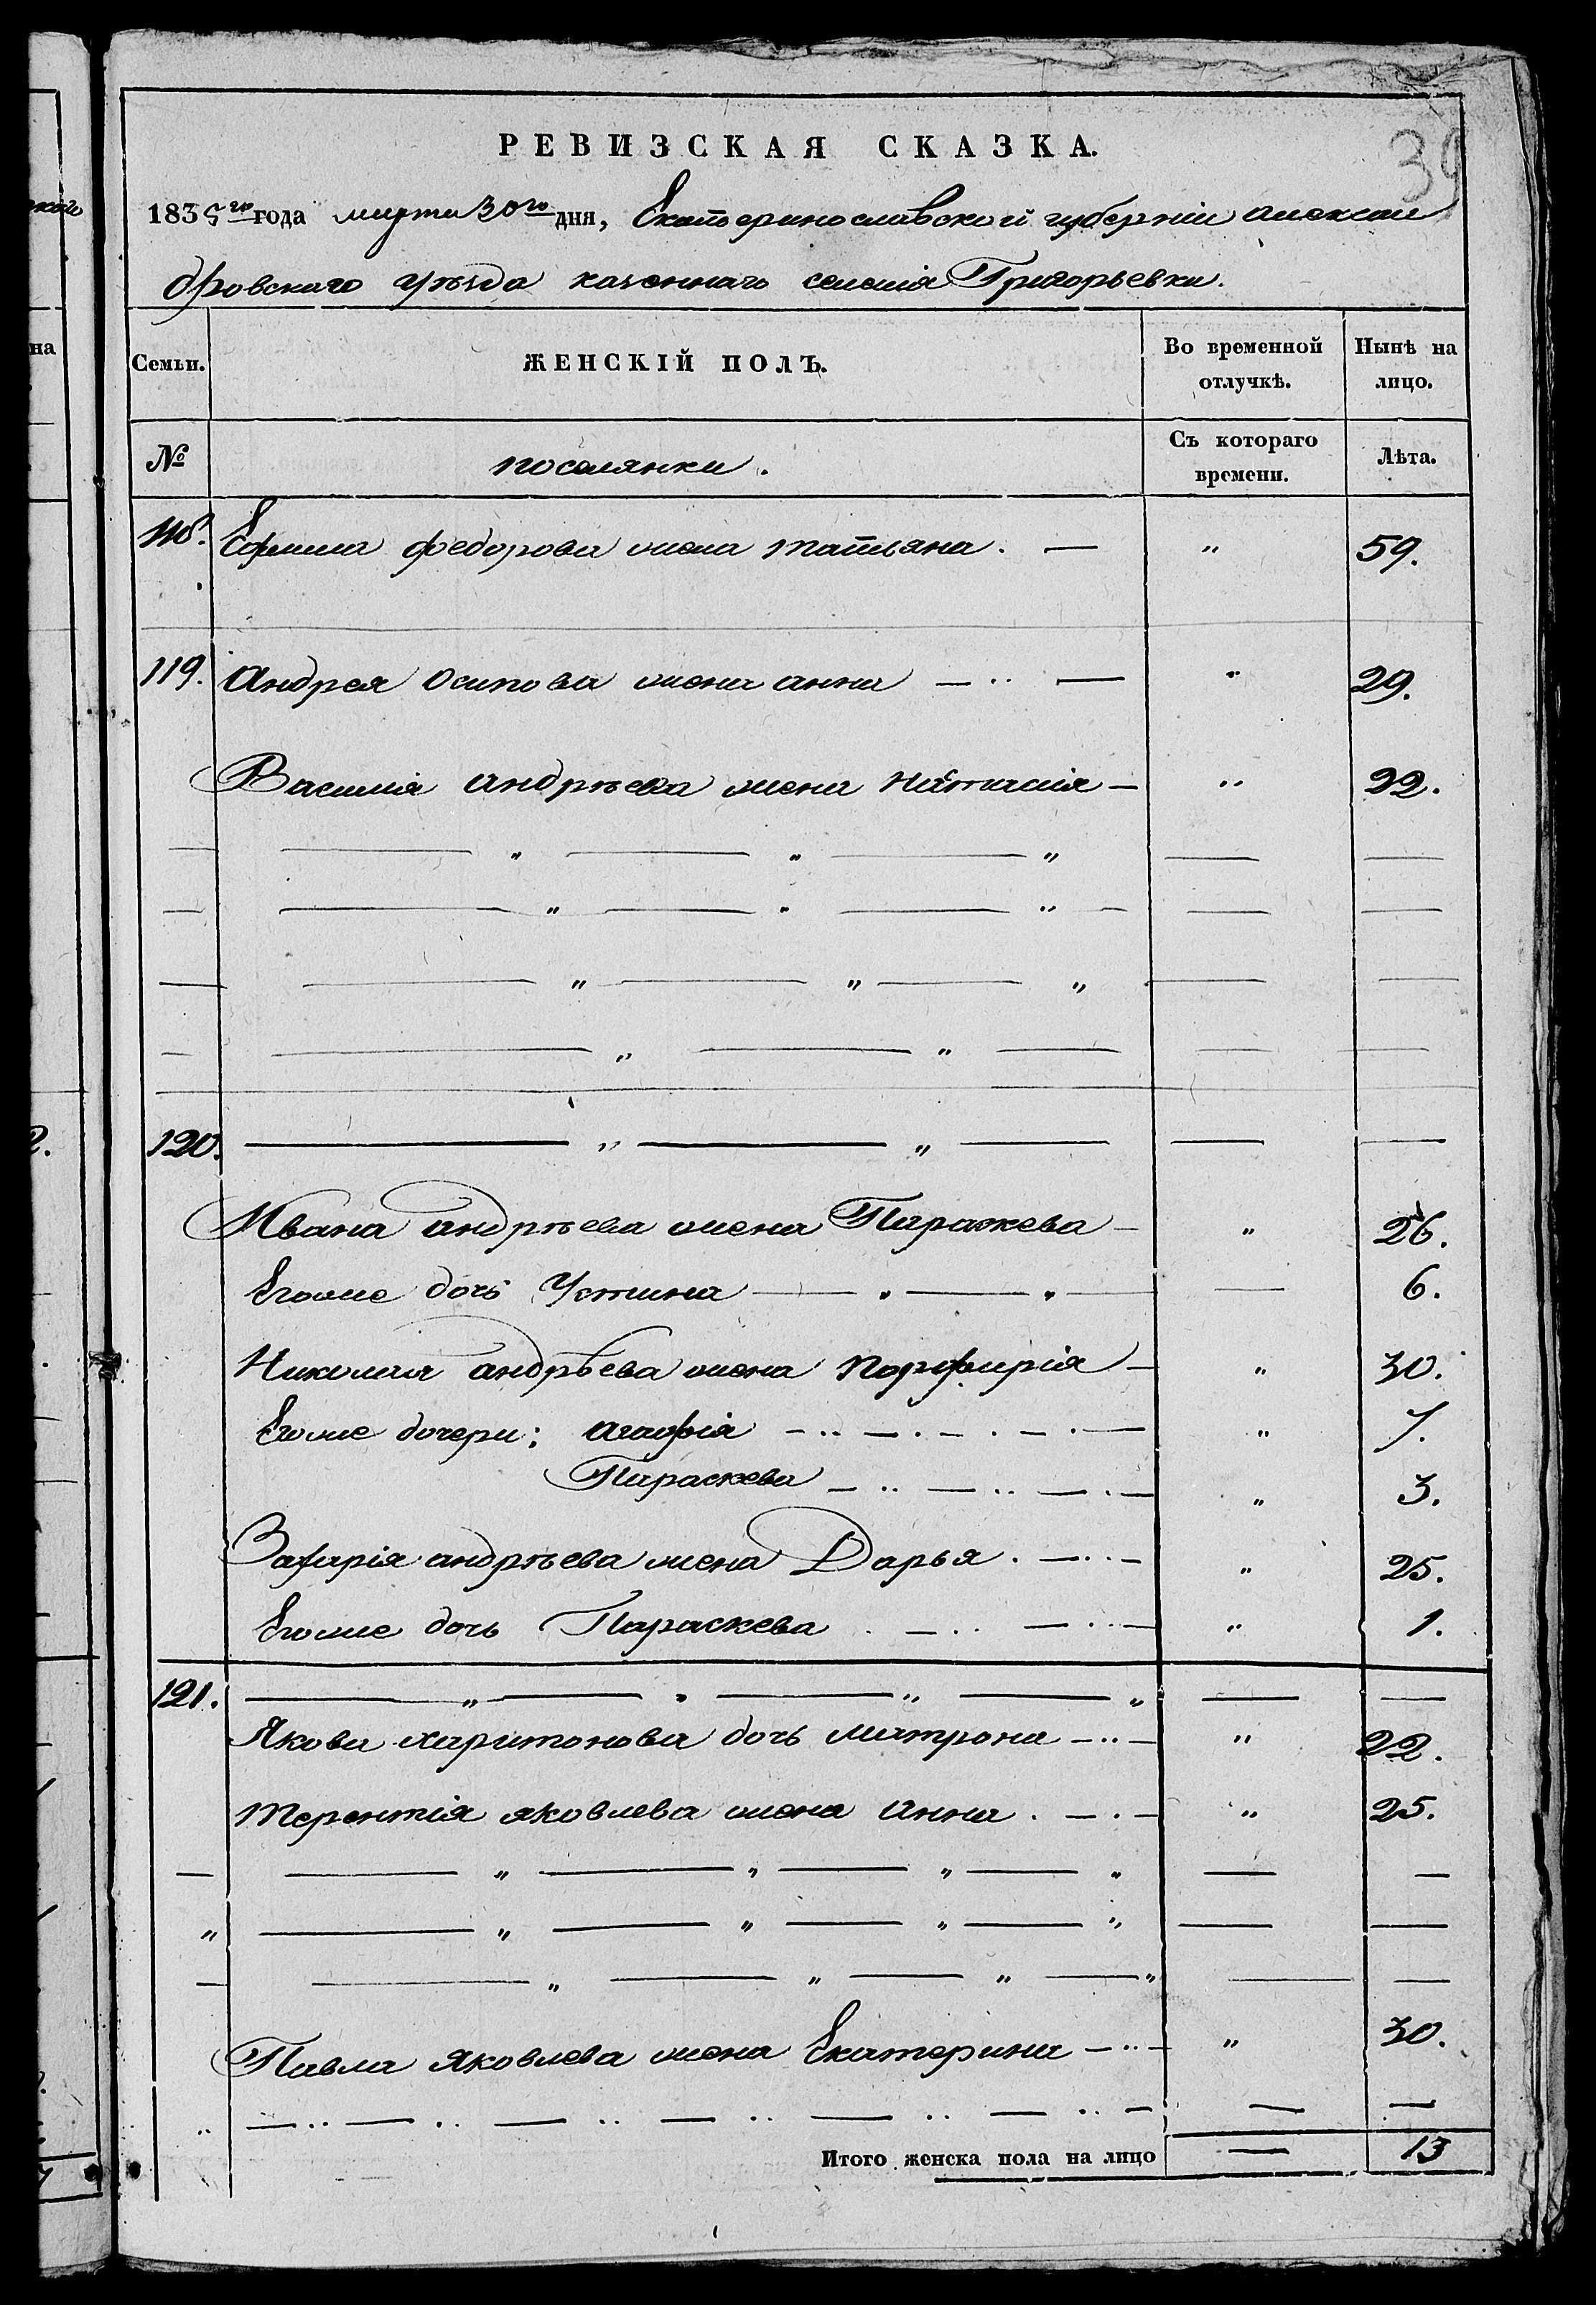 РЕВИЗСКАЯ СКАЗКА.
39
1835го года марта 30го дня, Екатеринославской губерніи Алексан
дровскаго уѣзда казеннаго селенія Григорьевки.
Семьи. ЖЕНСКІЙ ПОЛЪ. Во временной отлучкѣ. Нынѣ на лицо.
№ поселянки. Съ котораго времени. Лѣта.
118. Ефима федорова жена татьяна. — " 59.
119. Андрея Осипова жена анна — .. — " 29.
Василія андрѣева жена наталія — " 22.
— " — " — " — —
— " — " — " — — —
— " — " — " — —
— " — " — — —
120. — " — " — — —
Ивана андрѣева жена Параскева — " 26.
Егоже дочь Устина — " — " — — 6.
Николая андрѣева жена порфирія — " 30.
Егоже дочери: агафія — .. — . — . — . — " 7.
Параскева — .. — .. — . — " 3.
Захарія андрѣева жена Дарья. — .. — " 25.
Егоже дочь Параскева . — .. — .. — " 1.
121. — " — " — " — " — —
Якова харитонова дочь матрона — .. — " 22.
терентія яковлева жена анна . — . — " 25.
— — " — " — " — " — —
" — " — " — " — " — —
— — " — " — " — " — —
Павла яковлева жена Екатерина — .. — " 30.
.. — .. — .. — .. — .. — .. — .. — — —
Итого женска пола на лицо — 13